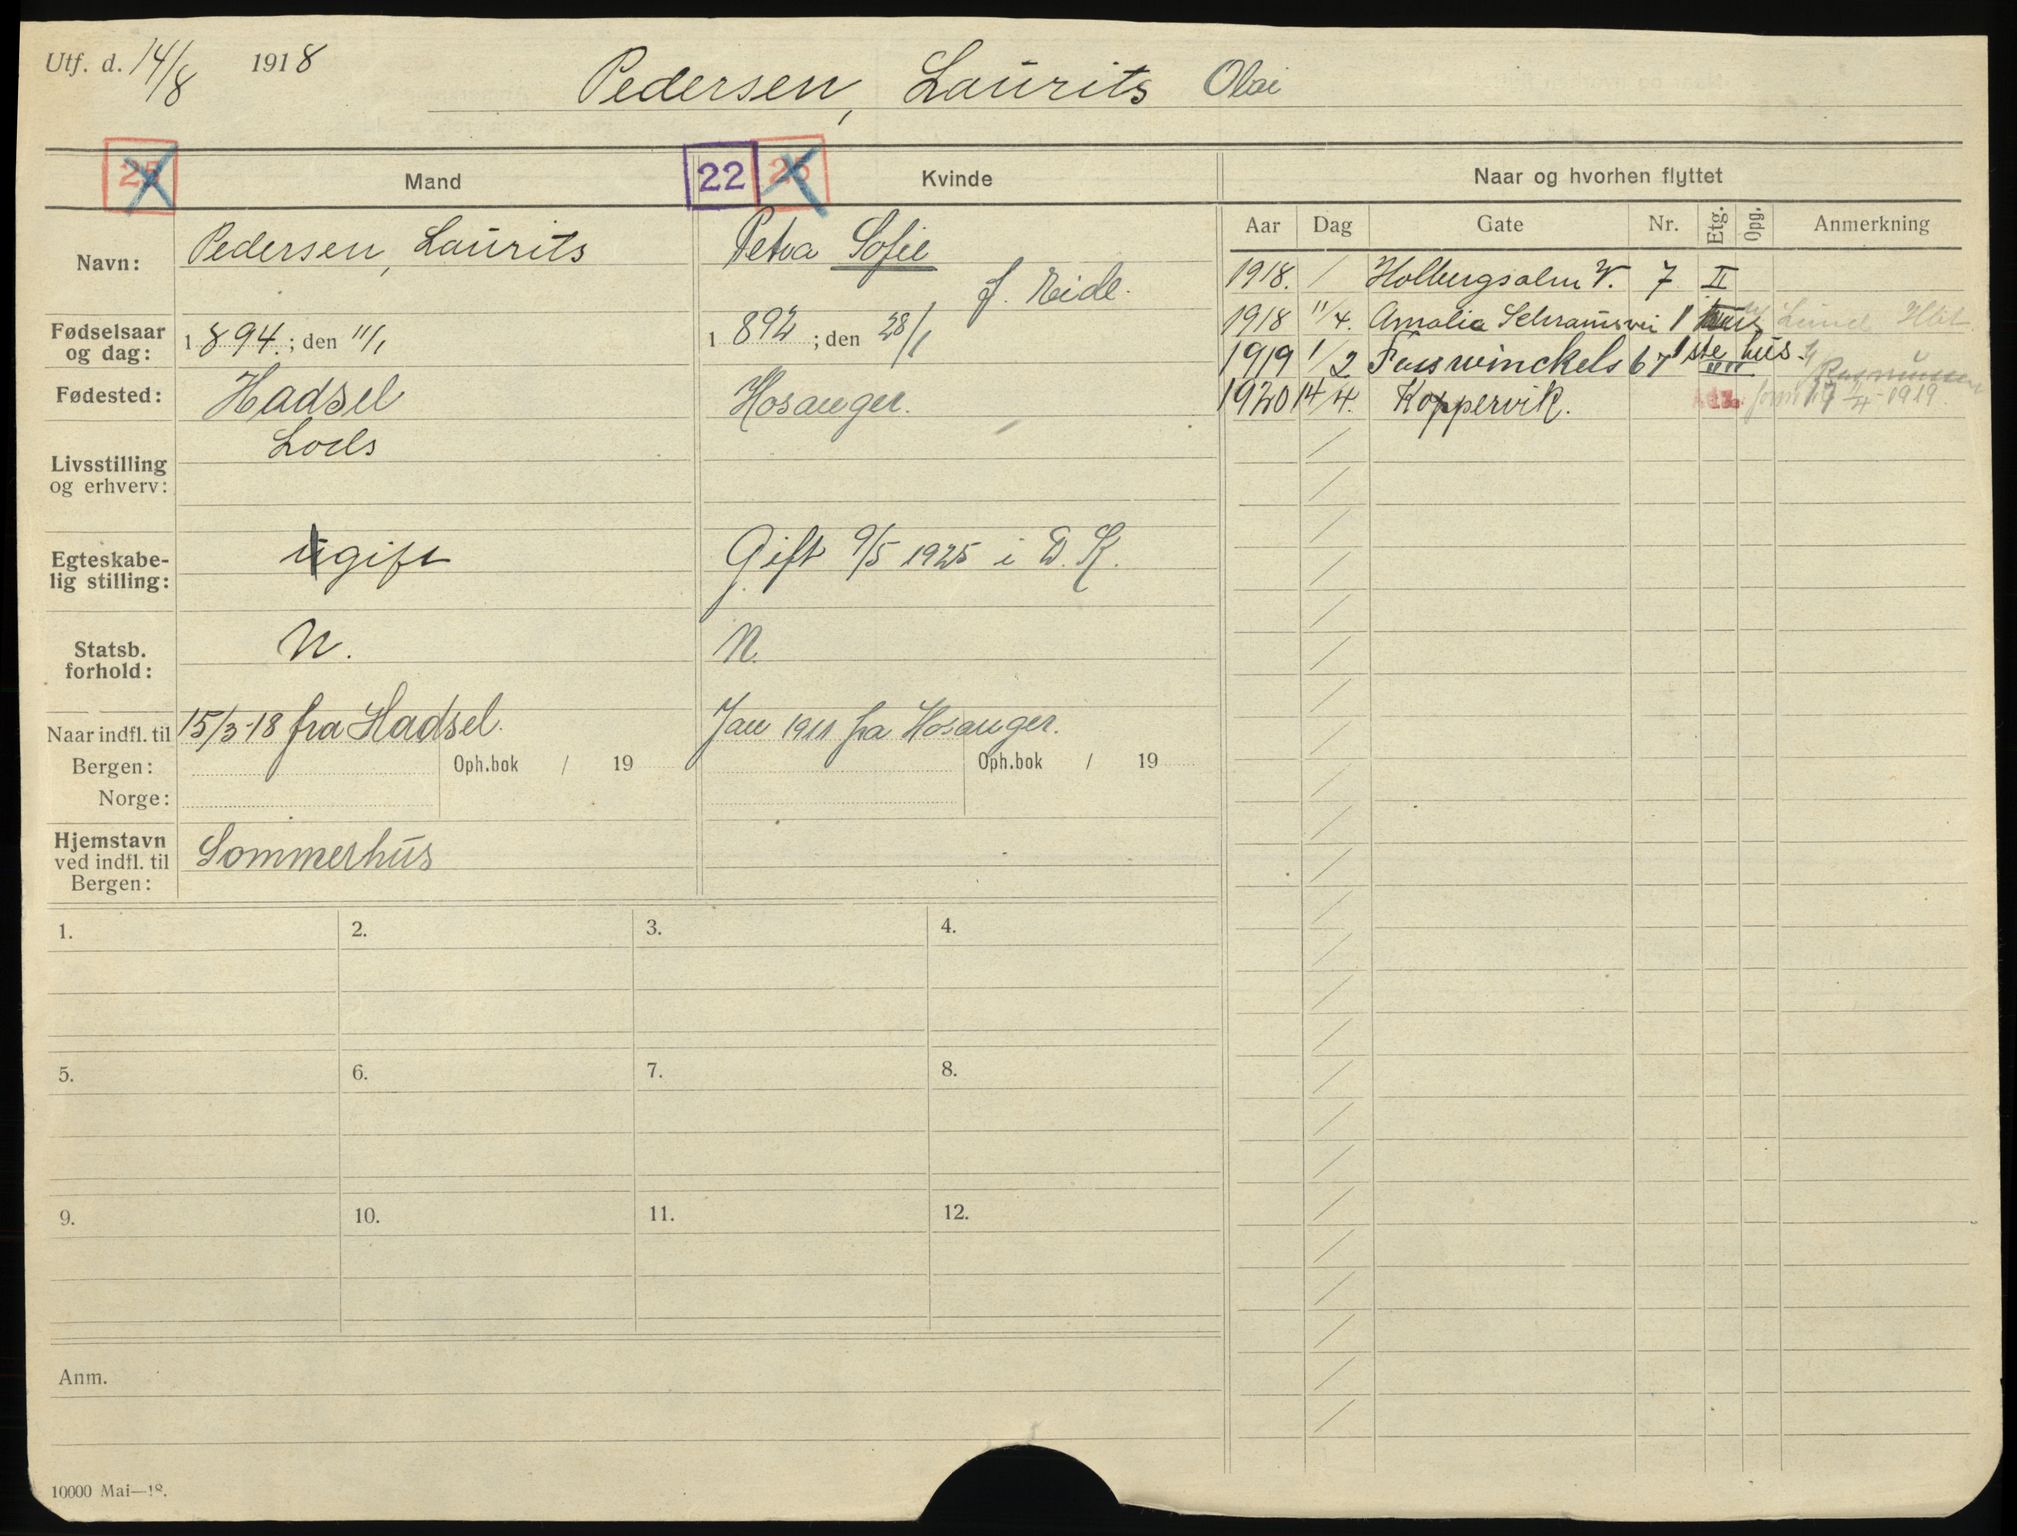 Utf. d. 14/8 1918
Pedersen, Laurits Olai
25 Mand 22 25 Kvinde Naar og hvorhen flyttet
Aar Dag Gate Nr. Etg. Opg. Anmerkning
Navn: Pedersen, Laurits Petra Sofie
f. Eide.
1918. / Holbergsalm W. 7 II
Fødselsaar og dag: 1894.; den 11/1 1892; den 28/1
1918 11/4. Amalie Schramsvei 1 Lund
1919 1/2 Fosswinckels 67 1ste hus.
Fødested: Hadsel Hosanger.
1920 14/4. Koppervik. 17/4-1919
Livsstilling og erhverv: Lods
Egteskabe-
lig stilling: ugift Gift 9/5 1925 i D. K.
Statsb.
forhold: N. N.
Naar indfl. til 15/3-18 fra Hadsel. Jan 1911 fra Hosanger.
Bergen: Oph.bok / 19 Oph.bok / 19
Norge:
Hjemstavn
ved indfl. til
Bergen: Sommerhus
1. 2. 3. 4.
5. 6. 7. 8.
9. 10. 11. 12.
Anm.
10000 Mai—18.